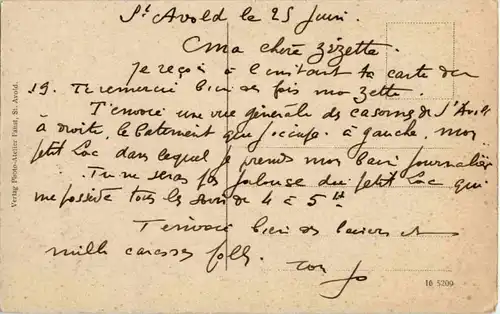 St Avold le 25 Juin.
Oma chère Zézette.
Je reçois à l'instant ta carte du
19. Te remercie bien des fois ma Zette.
T'envoie une vue générale des casernes de St Avold
à droite, le batement que j'occupe. à gauche, mon
petit Lac dans lequel je prends mon bain journalier
Tu ne seras pas jalouse du petit Lac qui
me possède tous les soirs de 4 à 5 h
T'envoie bien des baisers et
mille caresses folles.
ton Jo
Verlag Photo-Atelier Faust, St. Avold.
16 5209